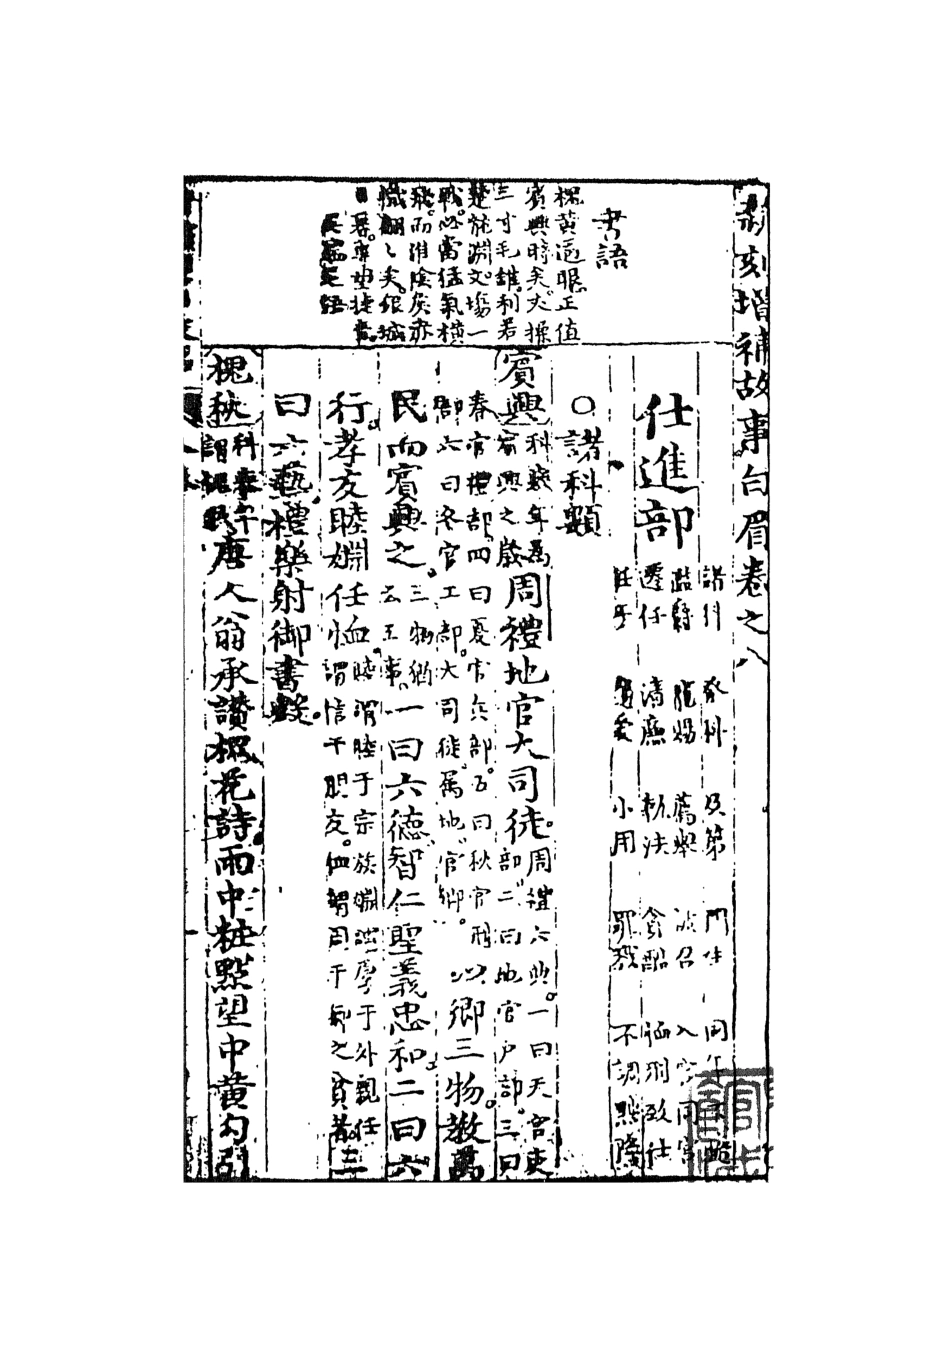 新刻增補故事白眉卷之八
書語
槐黃逼眼正值
賓興時矣大操
三寸毛錐利若
楚龍淵文場一
戰必當猛氣橫
飛而淮陰侯亦
幟矣銀城
望捷
仕進部
諸科 發科 及第 門生 同年
薦舉 徵召 入官 同官
遷任 清廉 新法 貪酷 致仕
小用 罪戮 不調 黜降
○諸科類
賓興 科舉年為賓興之歲 周禮地官大司徒 周禮六典一曰天官吏部二曰地官戶部三曰
春官禮部四曰夏官兵部五曰秋官刑部六曰冬官工部大司徒屬地官卿 以鄉三物教萬
民而賓興之 三物猶云三事 一曰六德智仁聖義忠和二曰六
行孝友睦婣任恤 睦謂睦于宗族婣謂厚于外親任謂信于朋友恤謂周于鄉之貧者 三
曰六藝禮樂射御書數
槐秋 科舉年謂槐秋 唐人翁承贊槐花詩雨中粧點望中黃勾引